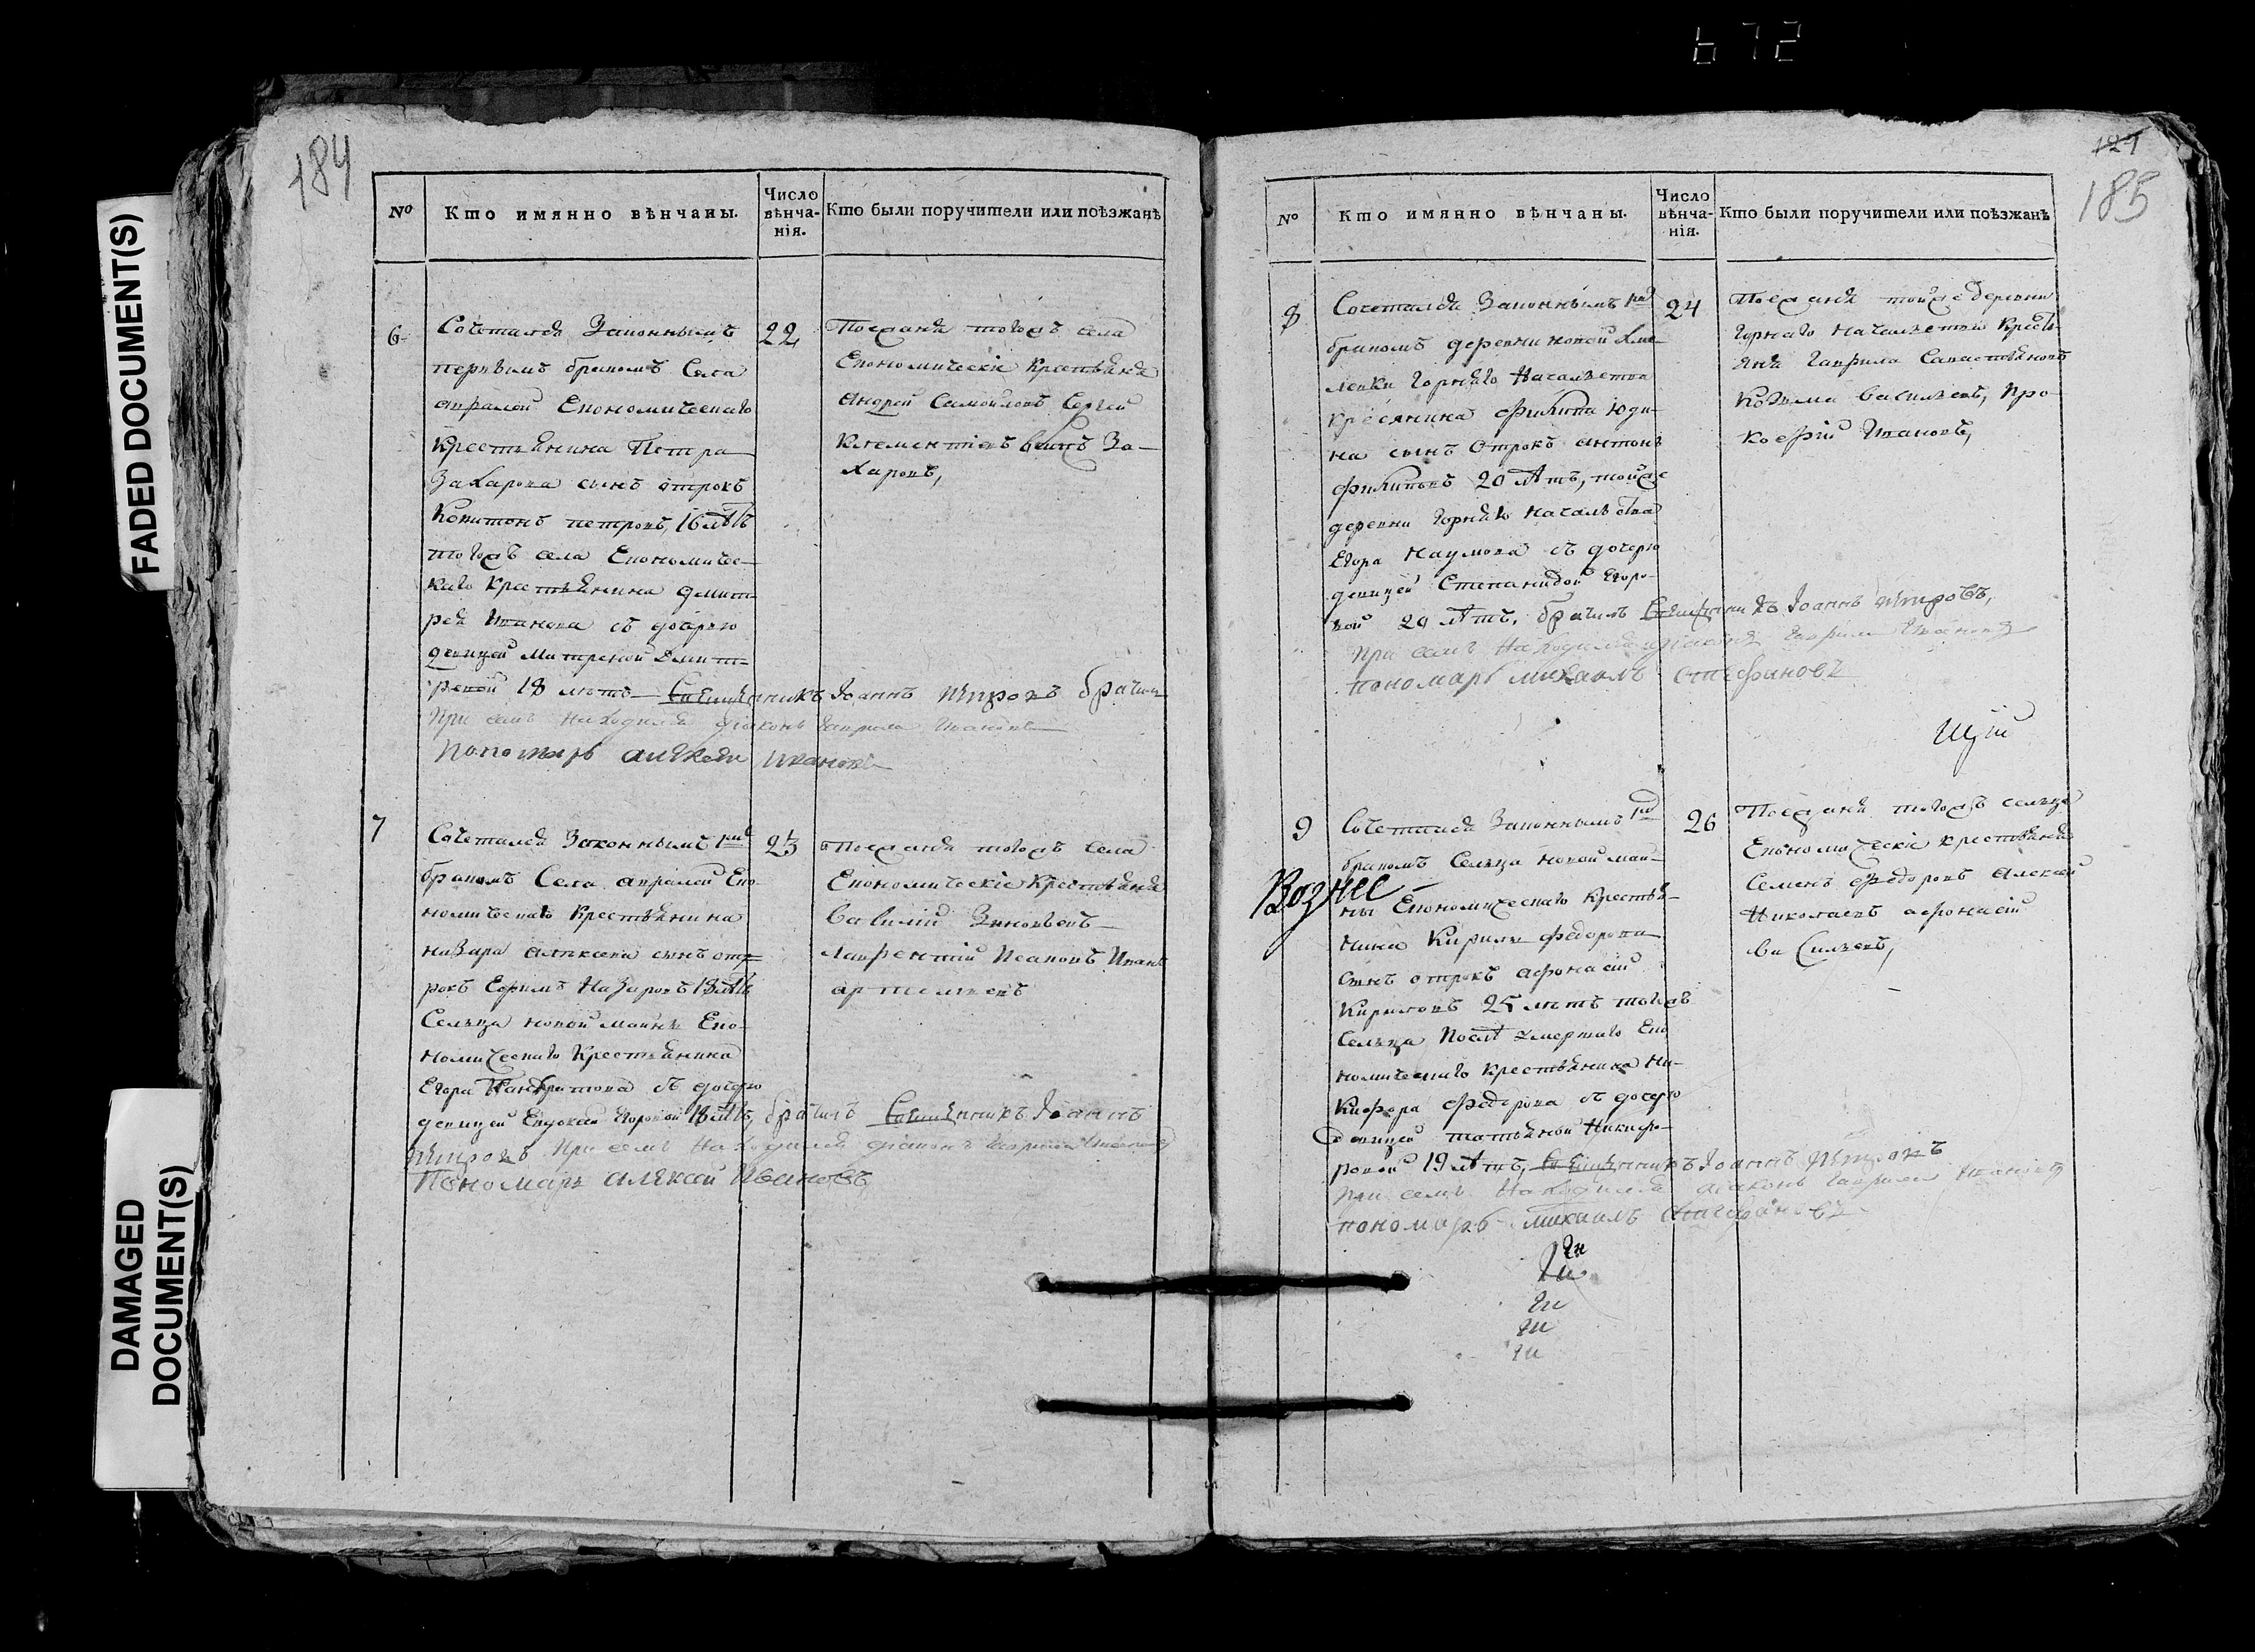 672
FADED DOCUMENT(S)
DAMAGED
DOCUMENT(S)
184
№
Кто имянно вѣнчаны.
Число
вѣнча-
нія.
Кто были поручители или поѣзжанѣ
6
Сочетался Законнымъ
первымъ бракомъ Села
Економическаго
Крестьянина Петра
Захарова сынъ отрокъ
петровъ, 16 лѣтъ
тогожъ села Економичес-
каго Крестьянина Дмит-
рея Иванова съ дочерью
девицей Матреной Дмит-
ревой 18 летъ Священникъ Іоаннъ Петровъ брачилъ
При семъ находился діаконъ Гаврила Ивановъ
Пономарь алѣксей Ивановъ
22
Поезжаня тогожъ села
Економическіе Крестьяня
Андрей Самоиловъ Сергей
Клементіевъ За-
харовъ,
7
Сочетался Законнымъ 1мъ
бракомъ Села Еко-
номическаго Крестьянина
назара алексеева сынъ от-
рокъ Ефимъ Назаровъ 18 лѣтъ
Сельца новой маины Еко-
номическаго Крестьянина
Егора Панкратова съ дочерю
девицей Евдокеей Егоровой 18 лѣтъ, брачилъ Священникъ Іоаннъ
Петровъ При семъ Находился діаконъ Гаврила Ивановъ
Пономарь алѣксей Ивановъ
23
Поезжаня тогожъ села
Економическіе Крестьяня
Василій Зиновьевъ
Лаврентій Исаковъ Иванъ
артемьевъ
121
185
№
Кто имянно вѣнчаны.
Число
вѣнча-
нія.
Кто были поручители или поѣзжанѣ
8
Сочетался Законнымъ 1мъ
бракомъ деревни новой Хме-
левки Горнаго Началства
Кресянина Филипа Юди-
на сынъ Отрокъ антонъ
Филиповъ 20 лѣтъ, тойже
деревни Горнаго Началства
Егора Наумова съ дочерю
девицей Степанидой Егоро-
вой 20 лѣтъ, брачилъ Священникъ Іоаннъ Петровъ,
При семъ Находился діаконъ Гаврила Ивановъ
пономарь михаилъ Стефановъ
24
Поезжаня тойже деревни
Горнаго Началства Кресть-
яня Гаврила Савастьяновъ
Козьма Васильевъ, Про-
кофій Ивановъ,
Щій
9
Вознес
Сочетался Законнымъ 1мъ
бракомъ Сельца новой маи-
ны Економическаго Крестья-
нина Кирилы Федорова
Сынъ отрокъ афонасій
Кириловъ 25 летъ тогожъ
Сельца Послѣ умершаго Еко
номическаго Крестьянина Ни-
кифора Федорова съ дочерю
девицей татьяной Никифо-
ровой 19 лѣтъ, Священникъ Іоаннъ Петровъ
При семъ Находился діаконъ Гаврила Ивановъ
пономарь михаилъ Стефановъ
26
Поезжаня тогожъ сельца
Економическіе крестьяня
Семенъ Федоровъ Алексей
Николаевъ афонасій
Васильевъ,